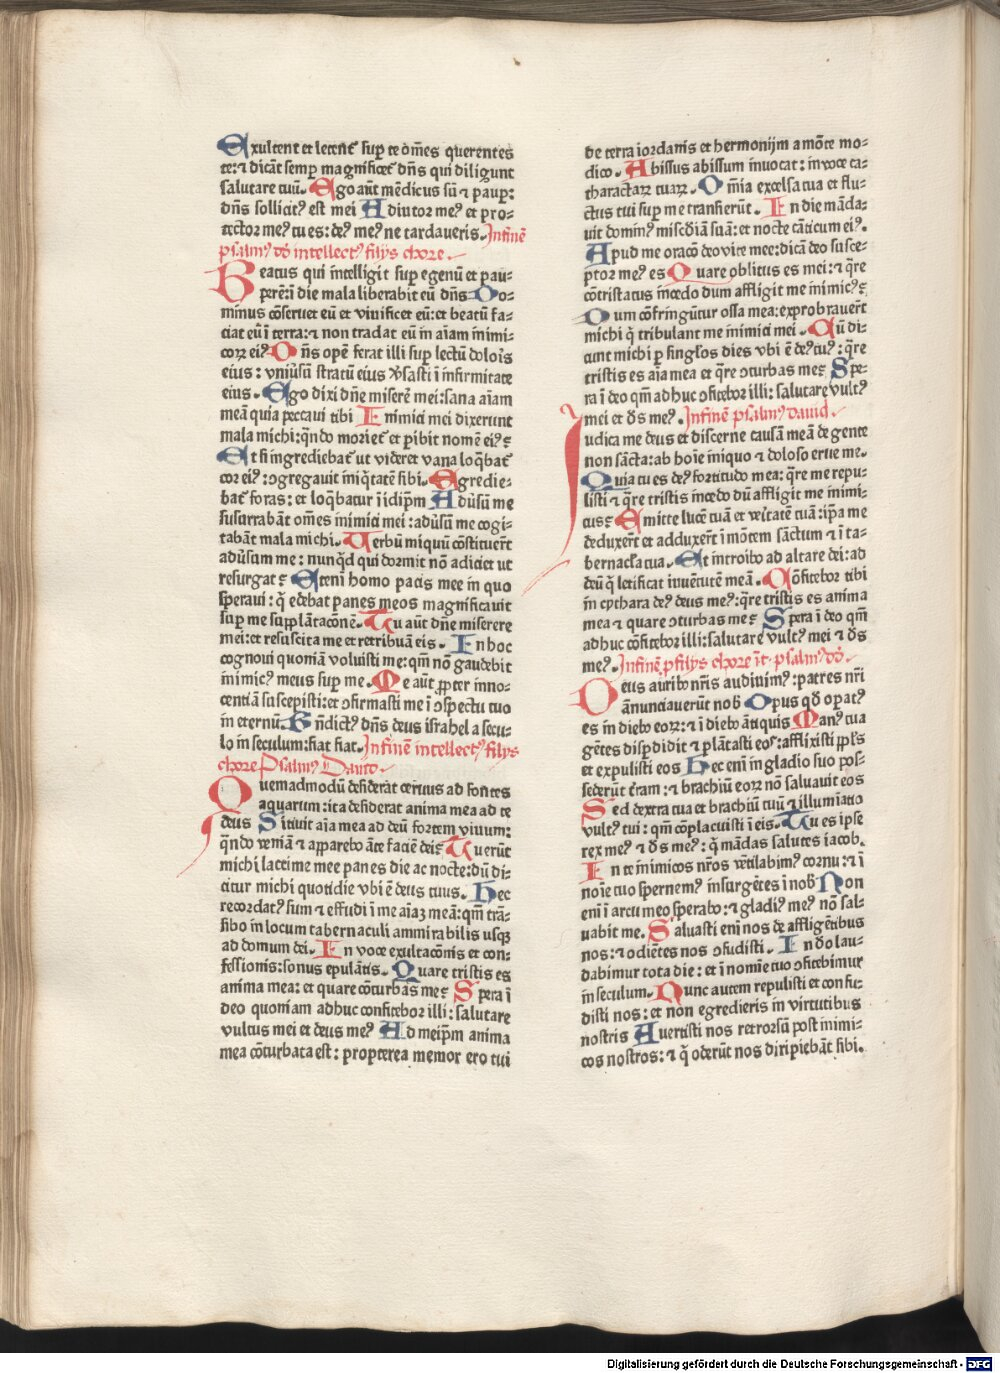 Exultent et letent͛ sup̱ te om̄es querentes
te: ⁊ dicāt semp̱ magnificet͛ dn̄s qui diligunt
salutare tuū. Ego aūt mēdicus sū ⁊ paup̱:
dn̄s sollicit⁹ est mei Adiutor me⁹ et pro-
tector me⁹ tu es: de⁹ me⁹ ne tardaveris. In finē
psalm⁹ dd̄ intellect⁹ filijs chore.
Beatus qui intelligit sup̱ egenū et pau-
perē: ī die mala liberabit eū dn̄s Do-
minus cōservet eū et vivificet eū: et beatū fa-
ciat eū ī terra: ⁊ non tradat eū in aīam inimi-
coꝝ ei⁹ Dn̄s opē ferat illi sup̱ lectū doloris
eius: vniūsū stratū eius v̄sasti ī infirmitate
eius. Ego dixi dn̄e miserē mei: sana aīam
meā quia peccavi tibi Inimici mei dixerunt
mala michi: qn̄do moriet͛ et ꝑibit nomē ei⁹
Et si ingrediebat͛ ut videret vana loq̄bat͛
cor ei⁹: ↄgregavit iniq̄tatē sibi. Egredie-
bat͛ foras: et loq̄batur ī idip̄m Adūsū me
susurrabāt om̄es inimici mei: adūsū me cogi-
tabāt mala michi. Verbū iniquū cōstituerūt
adūsum me: nunq̄d qui dormit nō adiciet ut
resurgat Eteni homo pacis mee in quo
speravi: q̄ edebat panes meos magnificavit
sup̱ me supplātacōnē. Tu aūt dn̄e miserere
mei: et resuscita me et retribuā eis. In hoc
cognovi quoniā voluisti me: qm̄ nō gaudebit
inimic⁹ meus sup̱ me. Me aūt ꝓpter inno-
centiā suscepisti: et ↄfirmasti me ī ↄspectu tuo
in eternū. Bn̄dict⁹ dn̄s deus israhel a secu-
lo in seculum: fiat fiat. In finē intellect⁹ filijs
chore Psalm⁹ David.
Quemadmodū desiderat cervus ad fontes
aquarum: ita desiderat anima mea ad te
deus Sitivit aīa mea ad deū fortem vivum:
qn̄do veniā ⁊ apparebo āte faciē dei Fuerūt
michi lacrime mee panes die ac nocte: dū di-
citur michi quotidie vbi ē deus tuus. Hec
recordat⁹ sum ⁊ effudi ī me aīaꝫ meā: qm̄ trā-
sibo in locum tabernaculi ammirabilis usqꝫ
ad domum dei. In voce exultacōnis et con-
fessionis: sonus epulātis. Quare tristis es
anima mea: et quare cōturbas me Spera ī
deo quoniam adhuc confitebor illi: salutare
vultus mei et deus me⁹ Ad meip̄m anima
mea cōturbata est: propterea memor ero tui
de terra iordanis et hermonijm a mōte mo-
dico. Abissus abissum invocat: in voce ca-
tharactaꝝ tuaꝝ. Om̄ia excelsa tua et flu-
ctus tui sup̱ me transierūt. In die māda-
vit domin⁹ misc̄diā suā: et nocte cāticum ei⁹.
Apud me oracō deo vite mee: dicā deo susce-
ptor me⁹ es Quare oblitus es mei: ⁊ q̄re
cōtristatus incedo dum affligit me inimic⁹
Dum cōfringūtur ossa mea: exprobraverūt
michi q̄ tribulant me inimici mei. Dū di-
cunt michi ꝑ singl̄os dies vbi ē de⁹ tu⁹: q̄re
tristis es aīa mea et q̄re ↄturbas me Spe-
ra ī deo qm̄ adhuc ↄfitebor illi: salutare vult⁹
mei et ds̄ me⁹. In finē psalm⁹ david.
Iudica me deus et discerne causā meā de gente
non sācta: ab hoīe iniquo ⁊ doloso erue me.
Quia tu es de⁹ fortitudo mea: q̄re me repu-
listi ⁊ q̄re tristis incedo dū affligit me inimi-
cus Emitte lucē tuā et veritatē tuā: ip̄a me
deduxerūt et adduxerūt ī mōtem sāctum ⁊ ī ta-
bernacl̄a tua. Et introibo ad altare dei: ad
deū q̄ letificat iuventutē meā. Cōfitebor tibi
in cythara de⁹ deus me⁹: q̄re tristis es anima
mea ⁊ quare ↄturbas me Spera ī deo qm̄
adhuc cōfitebor illi: salutare vult⁹ mei ⁊ ds̄
me⁹. In finē ꝓ filijs chore īt psalm⁹ dd̄.
Deus auribꝰ nr̄is audivim⁹: patres nr̄i
ānunciaverūt nob̄ Opus qd̄ opat⁹
es in diebꝰ eoꝝ: ⁊ ī diebꝰ ātiquis Man⁹ tua
gētes disp̱didit ⁊ plātasti eos: afflixisti pp̄l̄s
et expulisti eos Nec enī in gladio suo pos-
sederūt t̄ram: ⁊ brachiū eoꝝ nō salvavit eos
Sed dextra tua et brachiū tuū ⁊ illuminatio
vult⁹ tui: qm̄ cōplacuisti ī eis. Tu es ipse
rex me⁹ ⁊ ds̄ me⁹: q̄ mādas salutes iacob.
In te inimicos nr̄os vētilabim⁹ cornu: ⁊ ī
noīe tuo spernem⁹ insurgētes ī nob̄ Non
enī ī arcu meo sperabo: ⁊ gladi⁹ me⁹ nō sal-
vabit me. Salvasti enī nos de affligētibus
nos: ⁊ odiētes nos ↄfudisti. In deo lau-
dabimur tota die: et ī nomīe tuo ↄfitebimur
in seculum. Nunc autem repulisti et confu-
disti nos: et non egredieris in virtutibus
nostris Avertisti nos retrorsū post inimi-
cos nostros: ⁊ q̄ oderūt nos diripiebāt sibi.
Digitalisierung gefördert durch die Deutsche Forschungsgemeinschaft - DFG